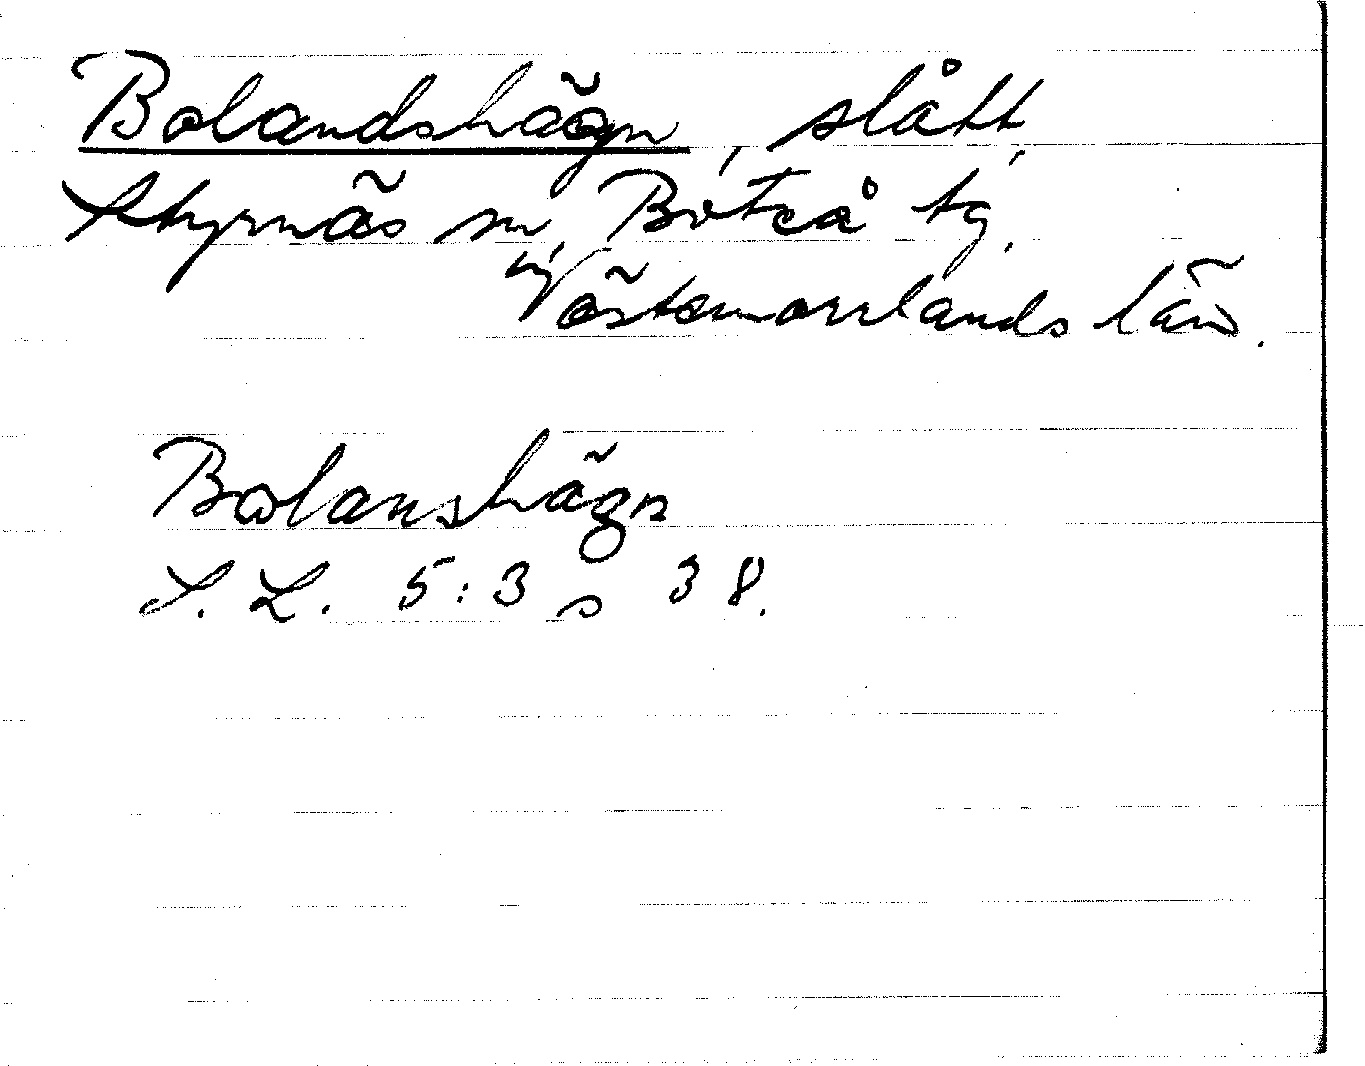 Bolandshägn, slått,
Styrnäs sn, Boteå tg.
Västernorrlands län.
Bolanshägn
S. L. 5:3 s 38.